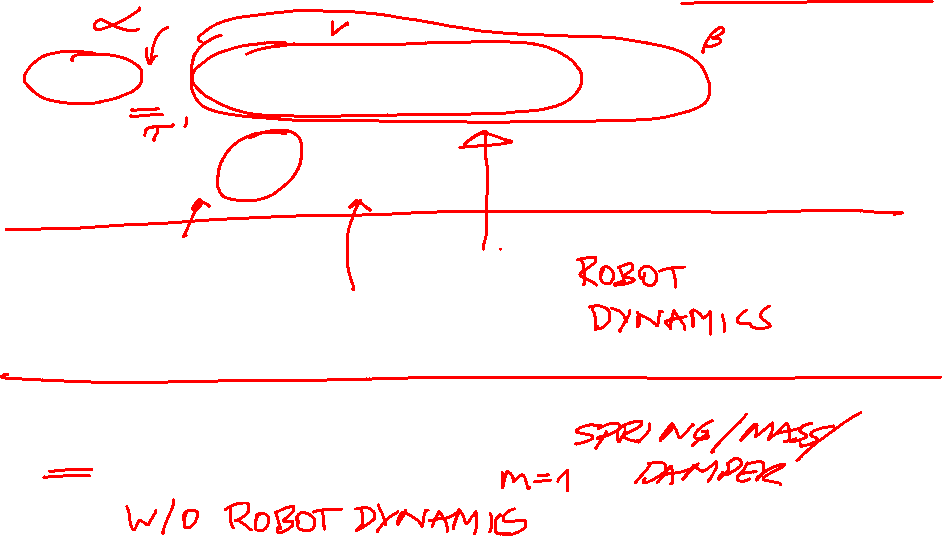 α
V
β
= τ'
ROBOT
DYNAMICS
SPRING/MASS/
DAMPER
= m=1
W/O ROBOT DYNAMICS